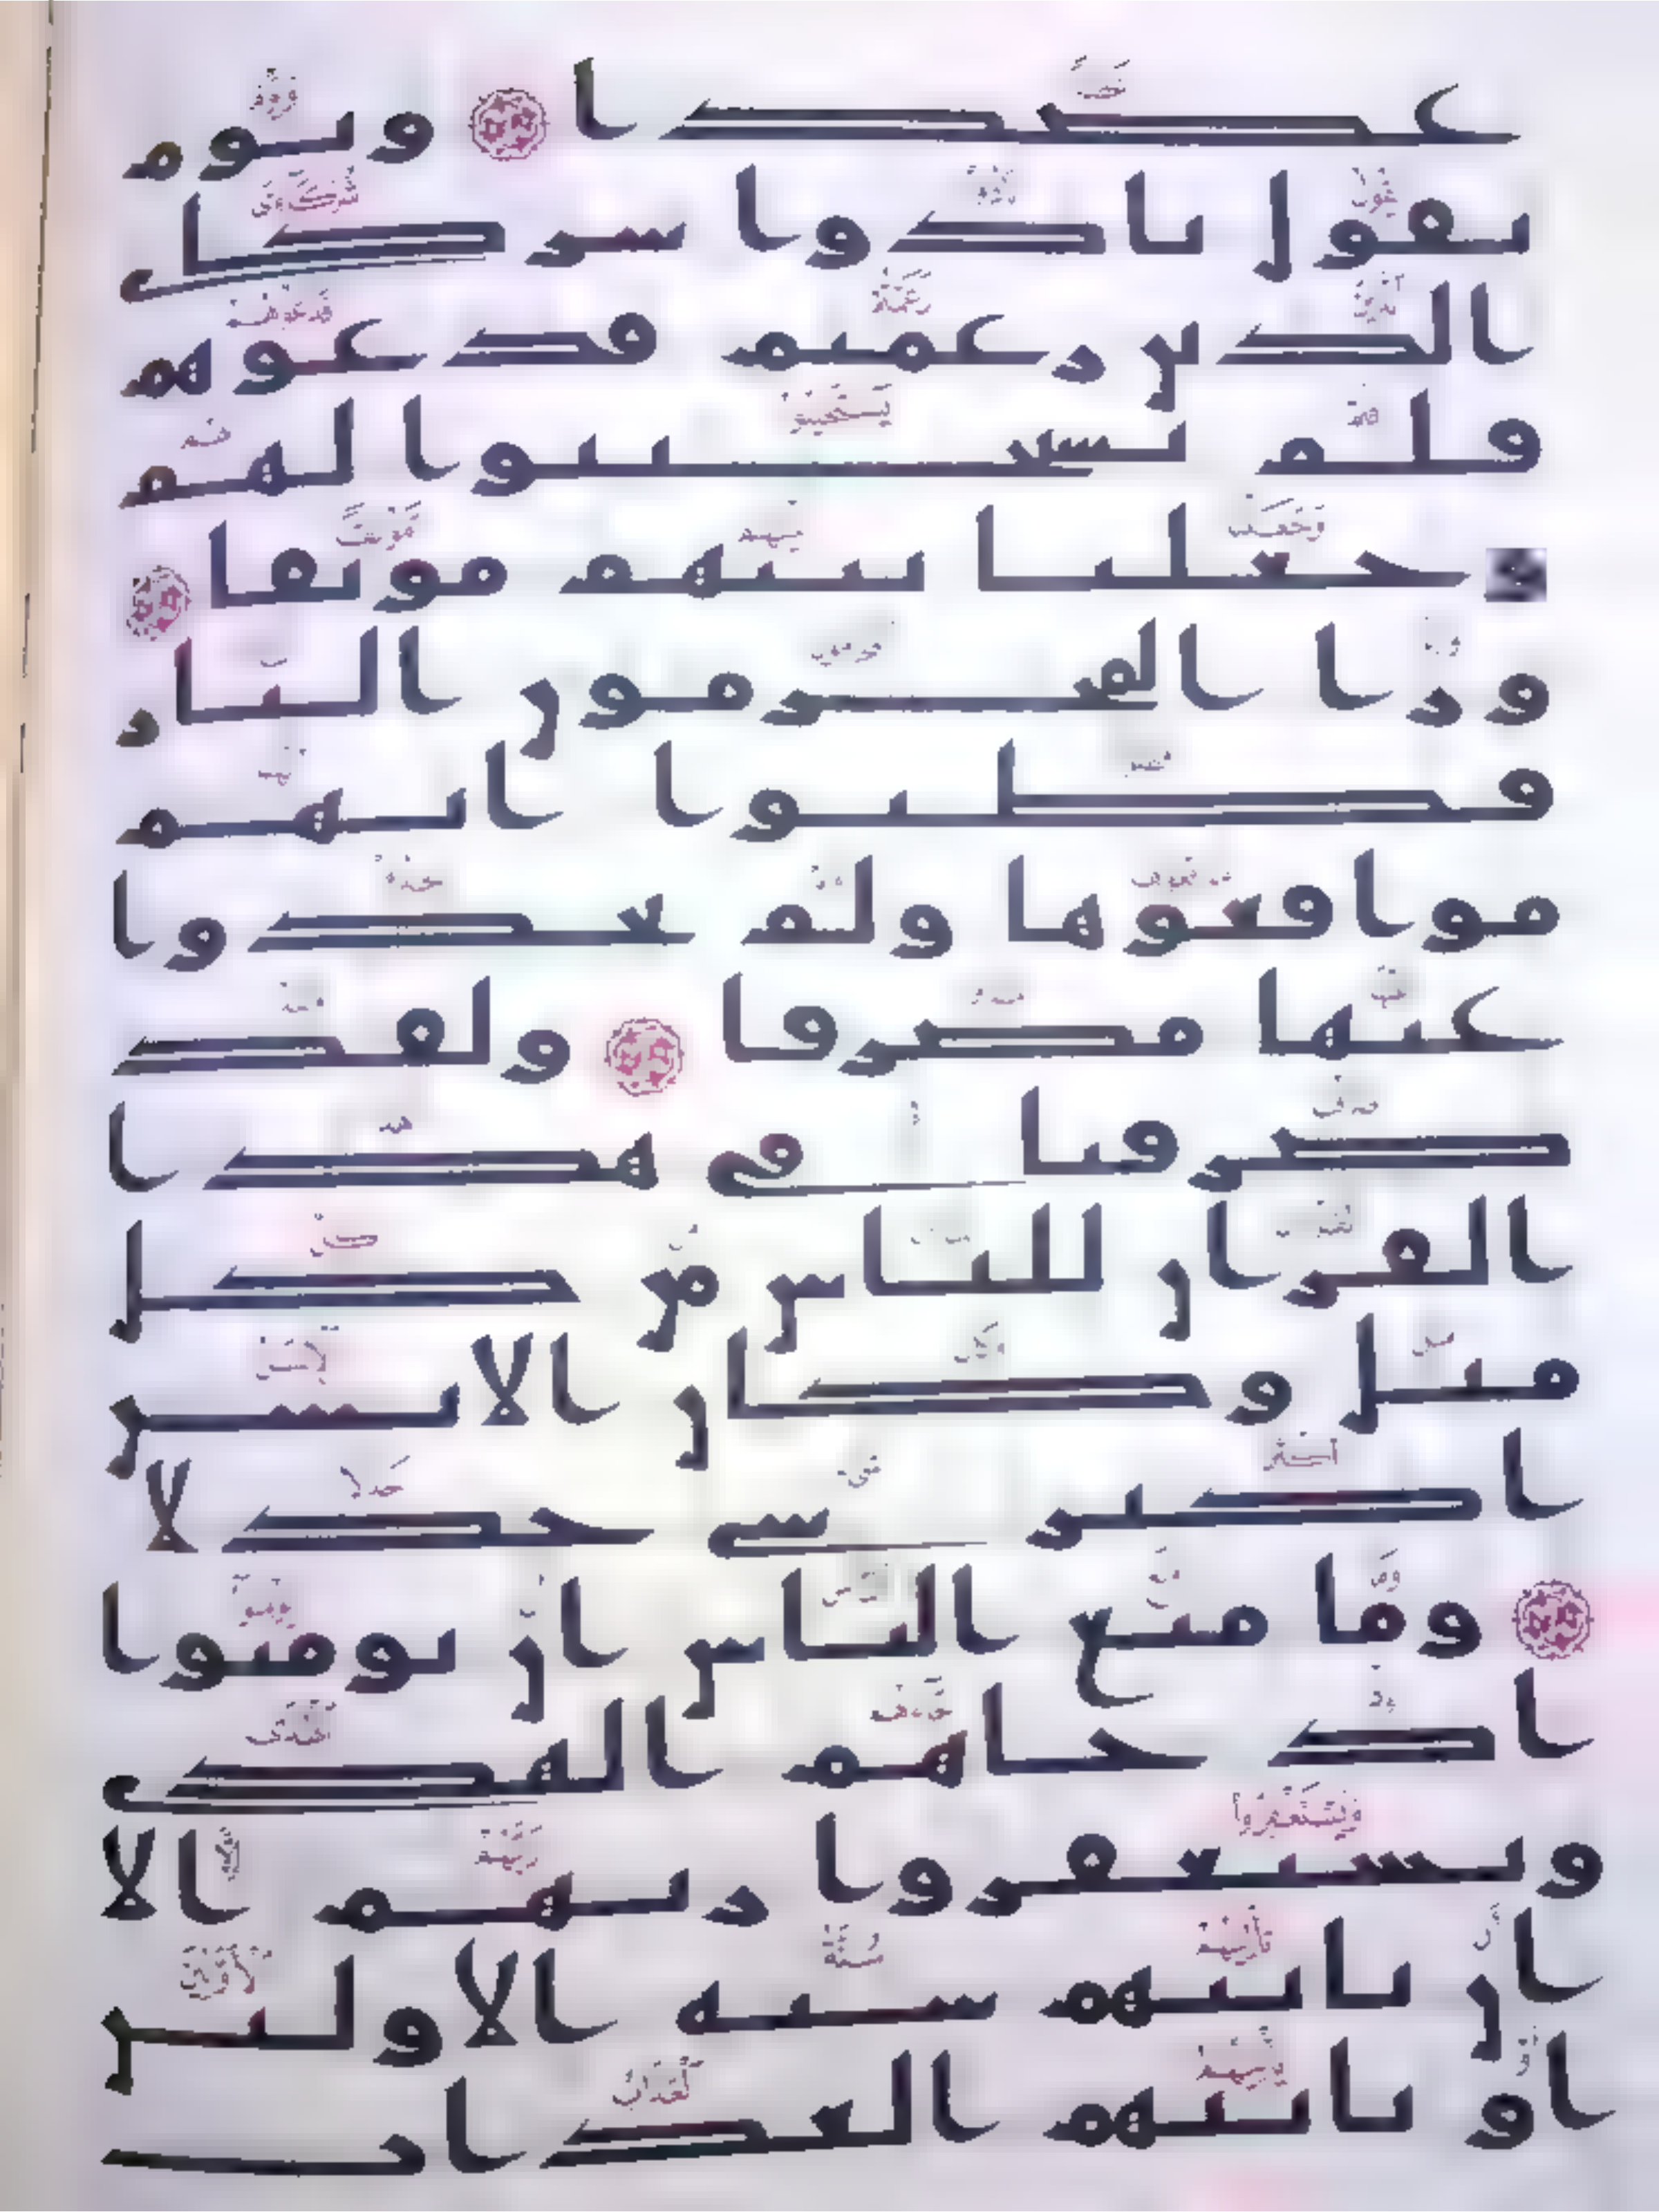 عضدا ويوم
يقول نادوا شركاى
الذين زعمتم فدعوهم
فلم يستجيبوا لهم
وجعلنا بينهم موبقا
ورا المجرمون النار
فظنوا انهم
مواقعوها ولم يجدوا
عنها مصرفا ولقد
صرفنا في هذا
القران للناس من كل
مثل وكان الانسن
اكثر شي جدلا
وما منع الناس ان يومنوا
اذ جاهم الهدى
ويستغفروا ربهم الا
ان تاتيهم سنة الاولين
او ياتيهم العذاب